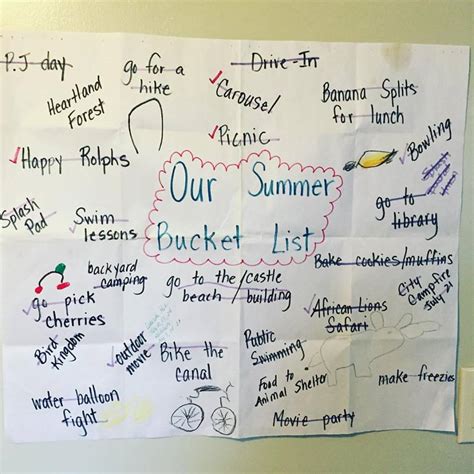 P.J day
go for a
hike
Drive-In
Heartland
Forest
Carousel
Banana Splits
for lunch
Picnic
Bowling
Happy Rolphs
Our Summer
Bucket List
Splash
Pad
Swim
lessons
go to
library
backyard
camping
go to the
beach
/castle
building
Bake cookies/muffins
go pick
cherries
City
Campfire
July 21
African Lions
Safari
Bird
Kingdom
outdoor
movie
Bike the
canal
Public
Swimming
Food to
Animal Shelter
make freezies
water balloon
fight
Movie party